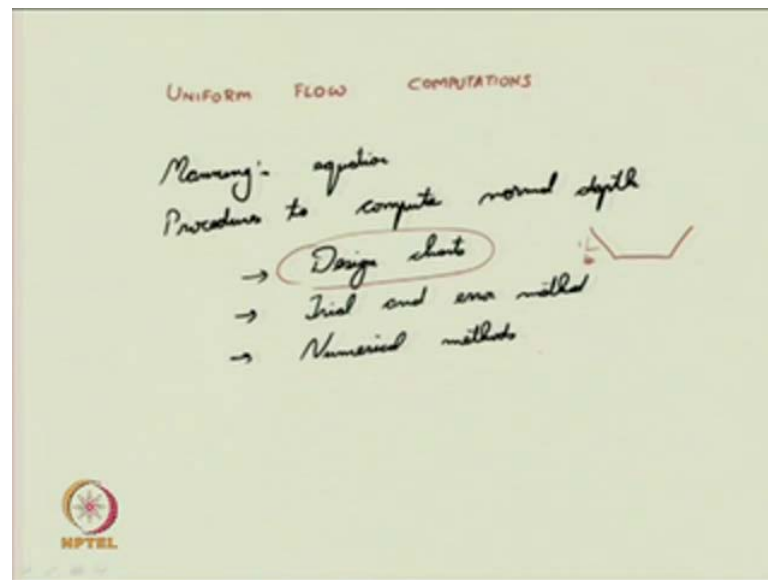 UNIFORM FLOW COMPUTATIONS
Manning's equation
Procedures to compute normal depth
→ Design charts
→ Trial and error method
→ Numerical methods
NPTEL